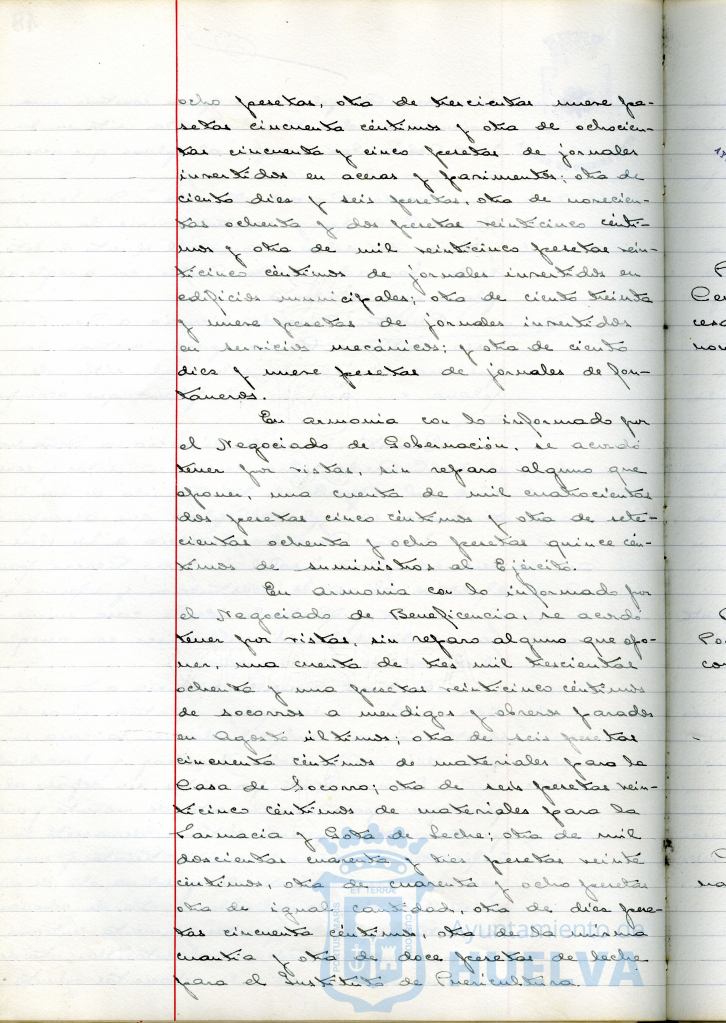 ocho pesetas, otra de trescientas nueve pe-
setas cincuenta céntimos y otra de ochocien-
tas cincuenta y cinco pesetas de jornales
invertidos en aceras y pavimentos; otra de
ciento dies y seis pesetas, otra de novecien-
tas ochenta y dos pesetas veinticinco cénti-
mos y otra de mil veinticinco pesetas vein-
ticinco céntimos de jornales invertidos en
edificios municipales; otra de ciento treinta
y nueve pesetas de jornales invertidos
en servicios mecánicos; y otra de ciento
dies y nueve pesetas de jornales de fon-
taneros.
En armonia con lo informado por
el Negociado de Gobernación, se acordó
tener por vistas, sin reparo alguno que
oponer, una cuenta de mil cuatrocientas
dos pesetas cinco céntimos y otra de sete-
cientas ochenta y ocho pesetas quince cén-
timos de suministros al Ejército.
En armonia con lo informado por
el Negociado de Beneficencia, se acordó
tener por vistas, sin reparo alguno que opo-
ner, una cuenta de tres mil trescientas
ochenta y una pesetas veinticinco céntimos
de socorros a mendigos y obreros parados
en Agosto último; otra de seis pesetas
cincuenta céntimos de materiales para la
Casa de Socorro; otra de seis pesetas vein-
ticinco céntimos de materiales para la
Farmacia y Gota de Leche; otra de mil
doscientas cuarenta y tres pesetas veinte
céntimos, otra de cuarenta y ocho pesetas
otra de igual cantidad, otra de dies pese-
tas cincuenta céntimos, otra de la misma
cuantia y otra de doce pesetas de leche
para el Instituto de Puericultura.
Ayuntamiento de
HUELVA